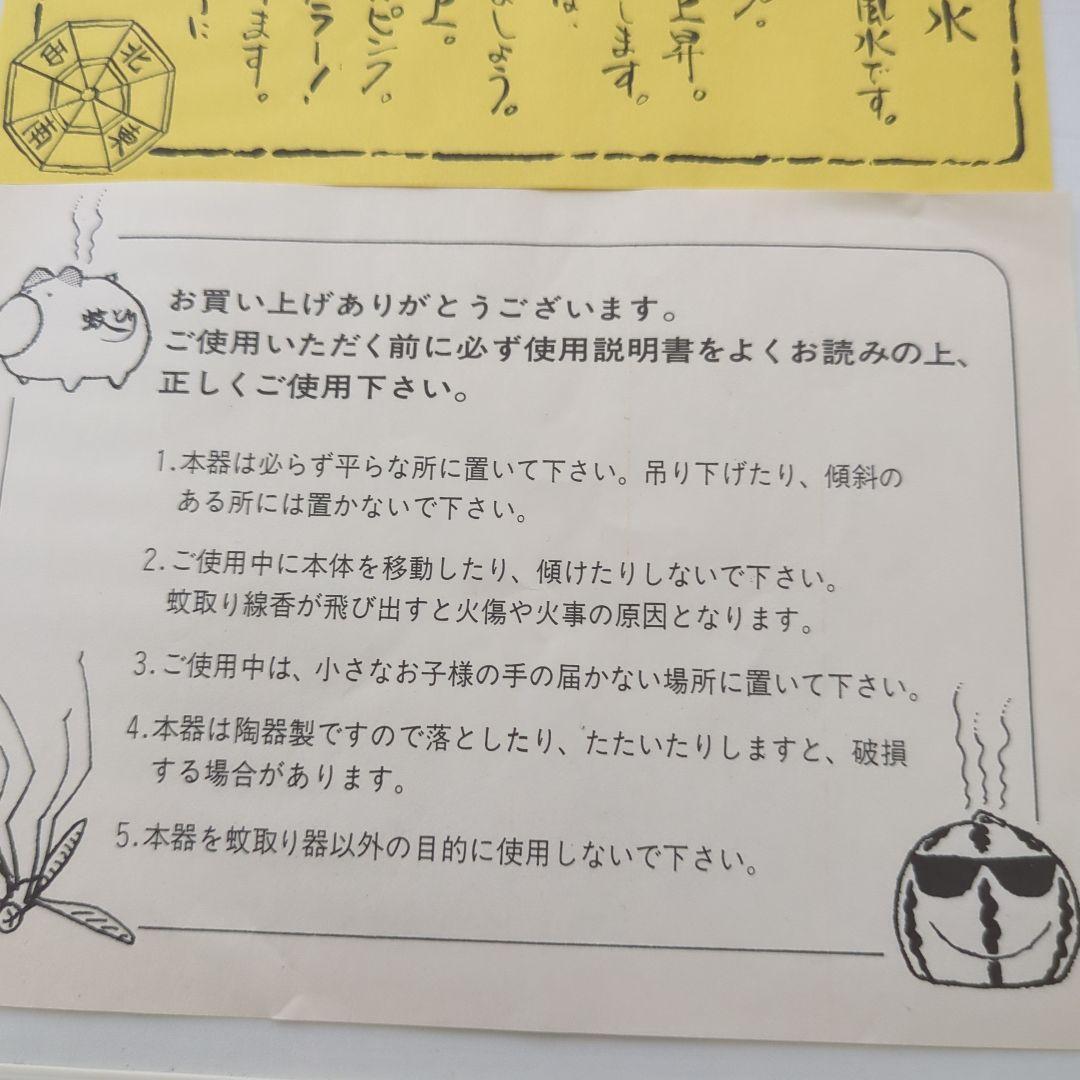 水
風水です。
上昇。
します。
ましょう。
上。
ピンク。
ラー！
ます。
に
北
東
南
西
蚊とり
お買い上げありがとうございます。
ご使用いただく前に必ず使用説明書をよくお読みの上、
正しくご使用下さい。
1.本器は必らず平らな所に置いて下さい。吊り下げたり、傾斜の
ある所には置かないで下さい。
2.ご使用中に本体を移動したり、傾けたりしないで下さい。
蚊取り線香が飛び出すと火傷や火事の原因となります。
3.ご使用中は、小さなお子様の手の届かない場所に置いて下さい。
4.本器は陶器製ですので落としたり、たたいたりしますと、破損
する場合があります。
5.本器を蚊取り器以外の目的に使用しないで下さい。